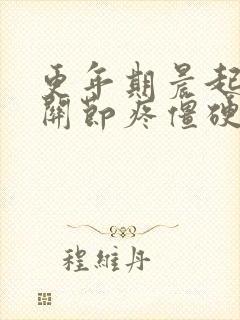 更年期晨起
關節疼僵硬
程維丹